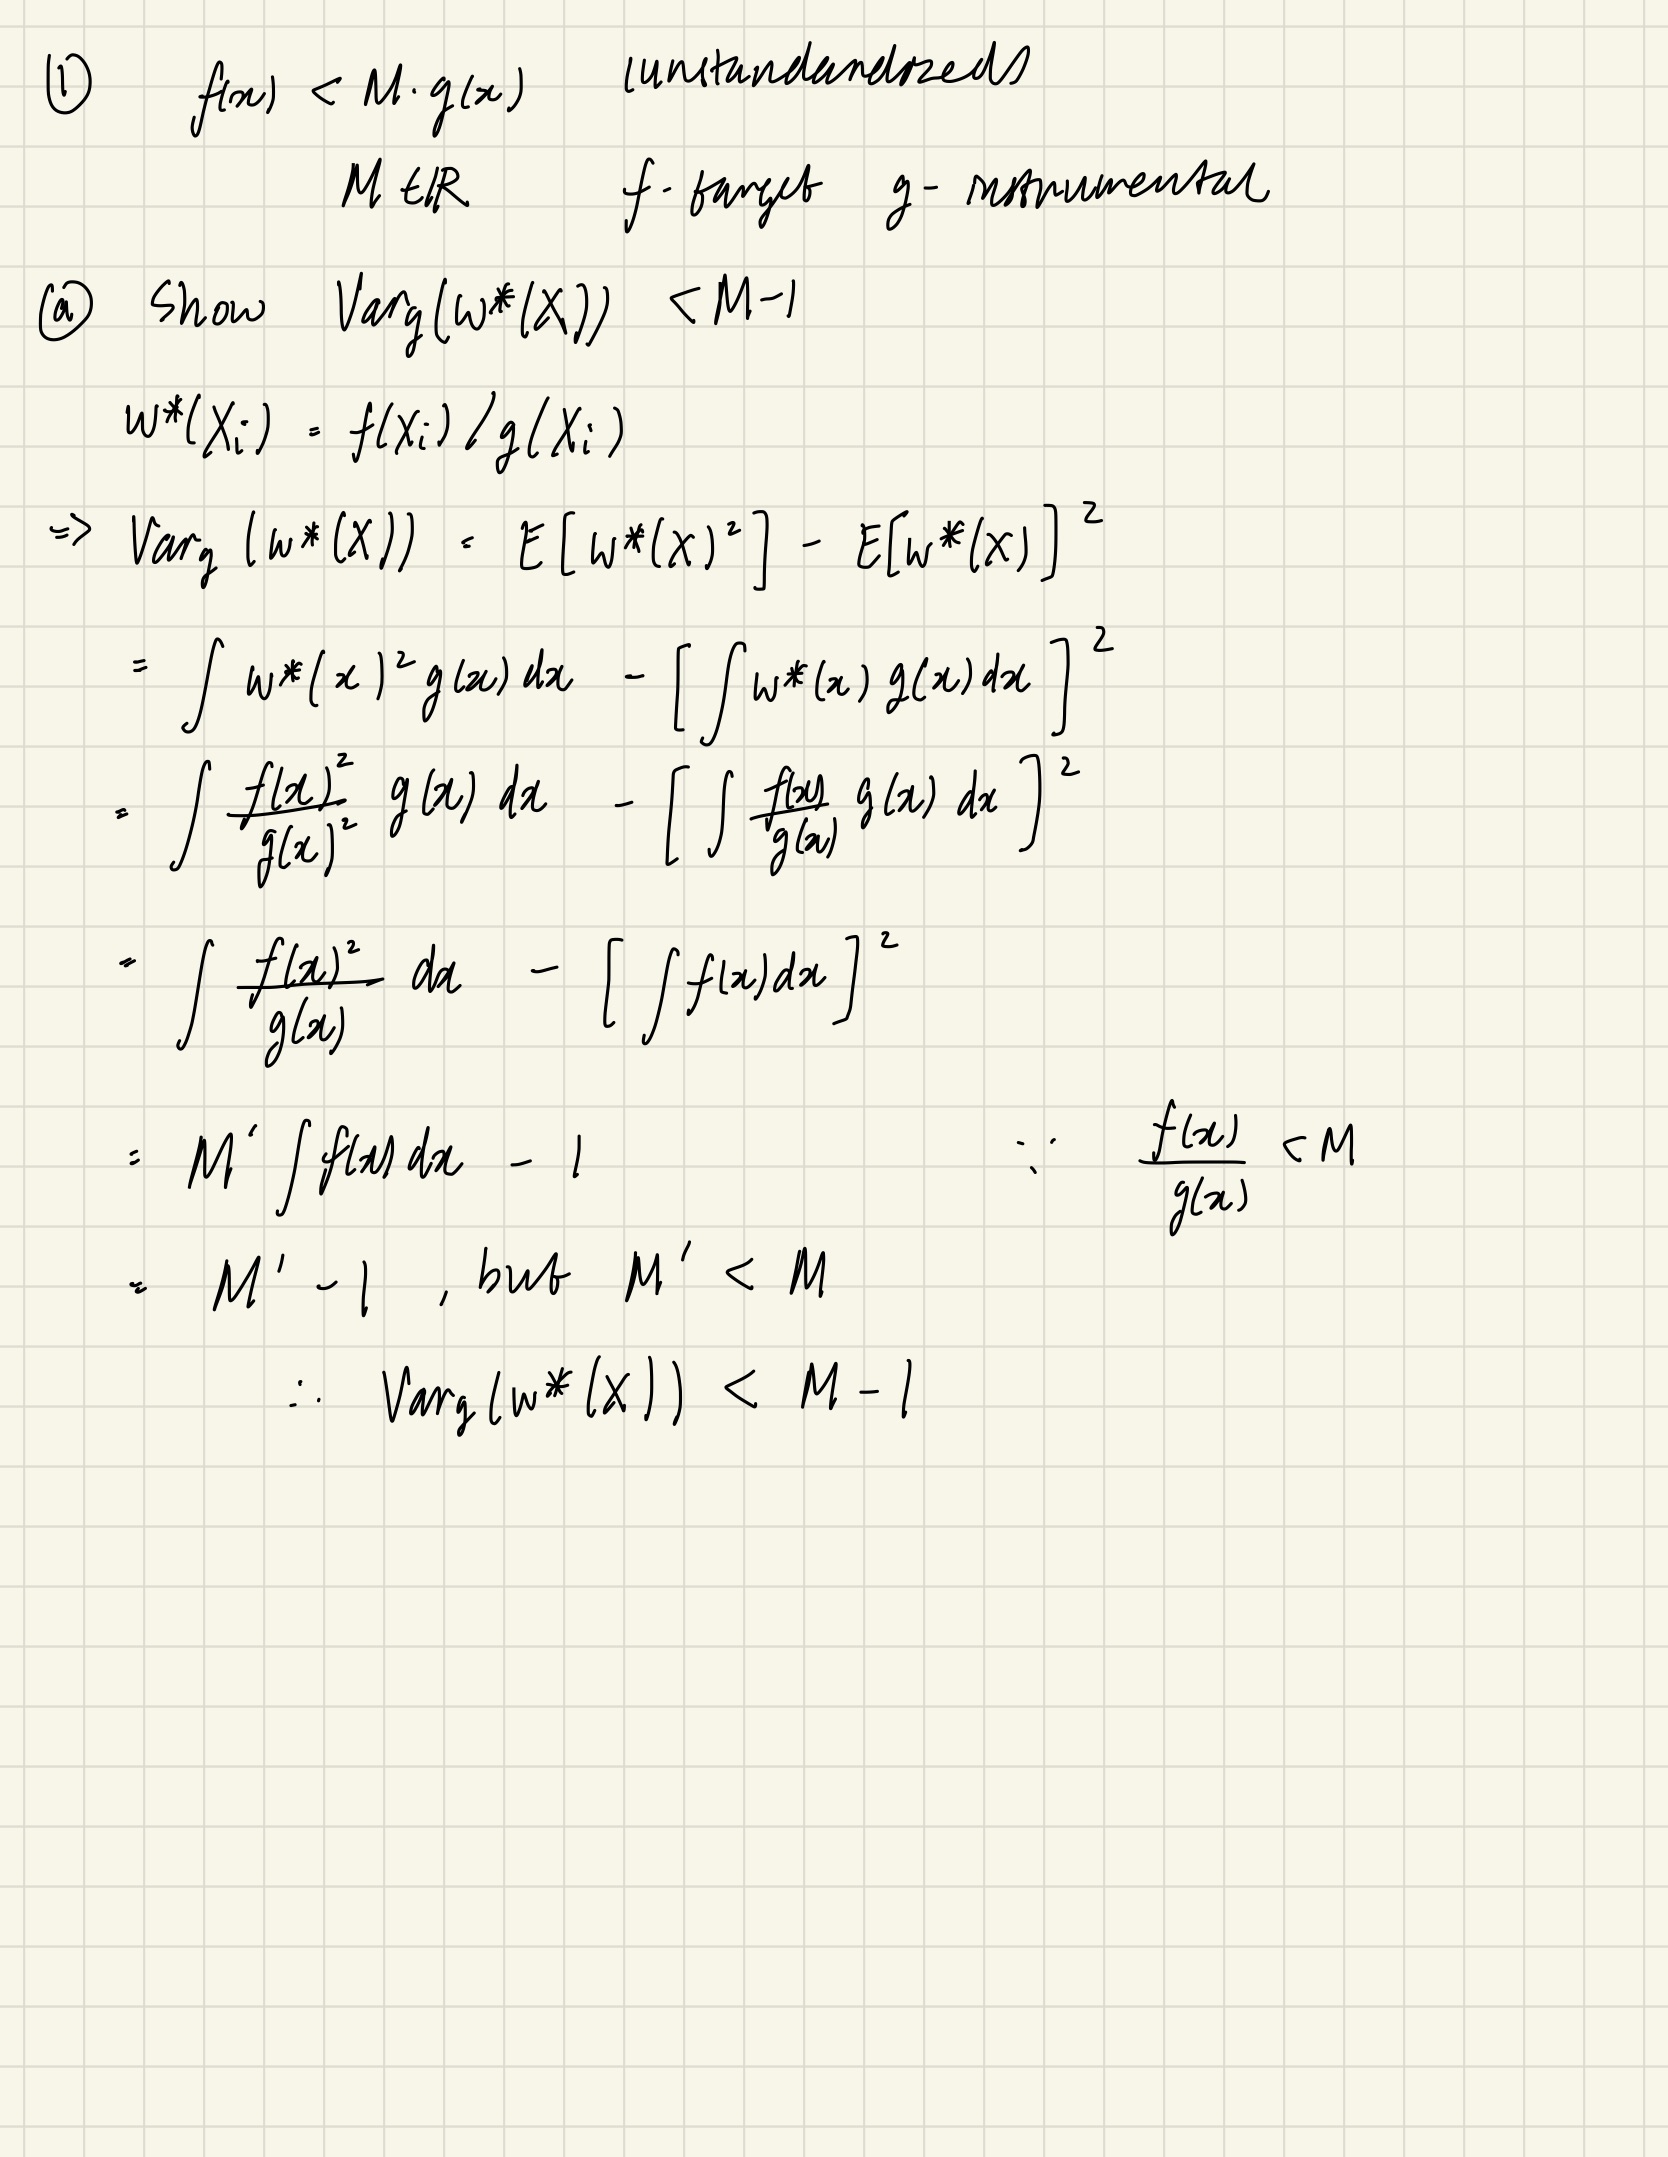 ① f(x) < M · g(x) (unstandardized)
M ∈ ℝ f - target g - instrumental
ⓐ Show Varg(w*(X)) < M - 1
w*(Xi) = f(Xi) / g(Xi)
=> Varg (w*(X)) = E[w*(X)²] - E[w*(X)]²
= ∫ w*(x)² g(x) dx - [∫ w*(x) g(x) dx]²
= ∫ f(x)²/g(x)² g(x) dx - [∫ f(x)/g(x) g(x) dx]²
= ∫ f(x)²/g(x) dx - [∫ f(x) dx]²
= M' ∫ f(x) dx - 1 ∵ f(x)/g(x) < M
= M' - 1 , but M' < M
∴ Varg(w*(X)) < M - 1